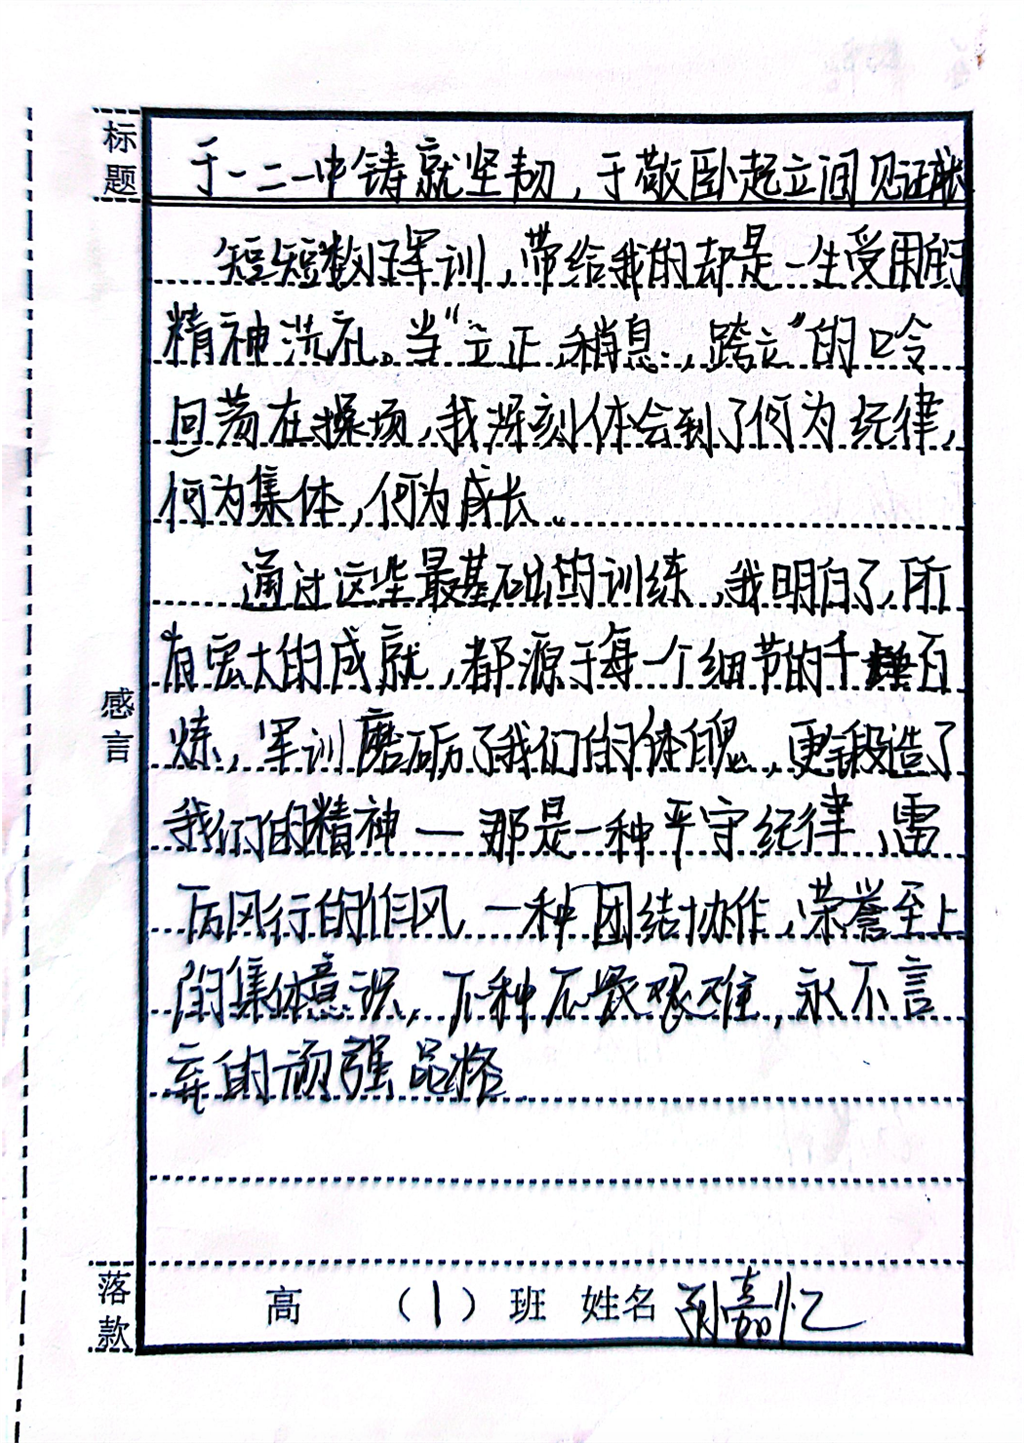 标题
于一二一中铸就坚韧，于敬卧起立间见证成长
短短数日军训，带给我的却是一生受用的
精神洗礼。当“立正，稍息，跨立”的口令
回荡在操场，我深刻体会到了何为纪律，
何为集体，何为成长。
通过这些最基础的训练，我明白了，所
有宏大的成就，都源于每一个细节的千锤百
炼，军训磨砺了我们的体魄，更锻造了
感言
我们的精神—那是一种严守纪律、雷
厉风行的作风，一种团结协作，荣誉至上
的集体意识，一种不畏艰难，永不言
弃的顽强品格
落款
高 （1）班 姓名 嘉忆